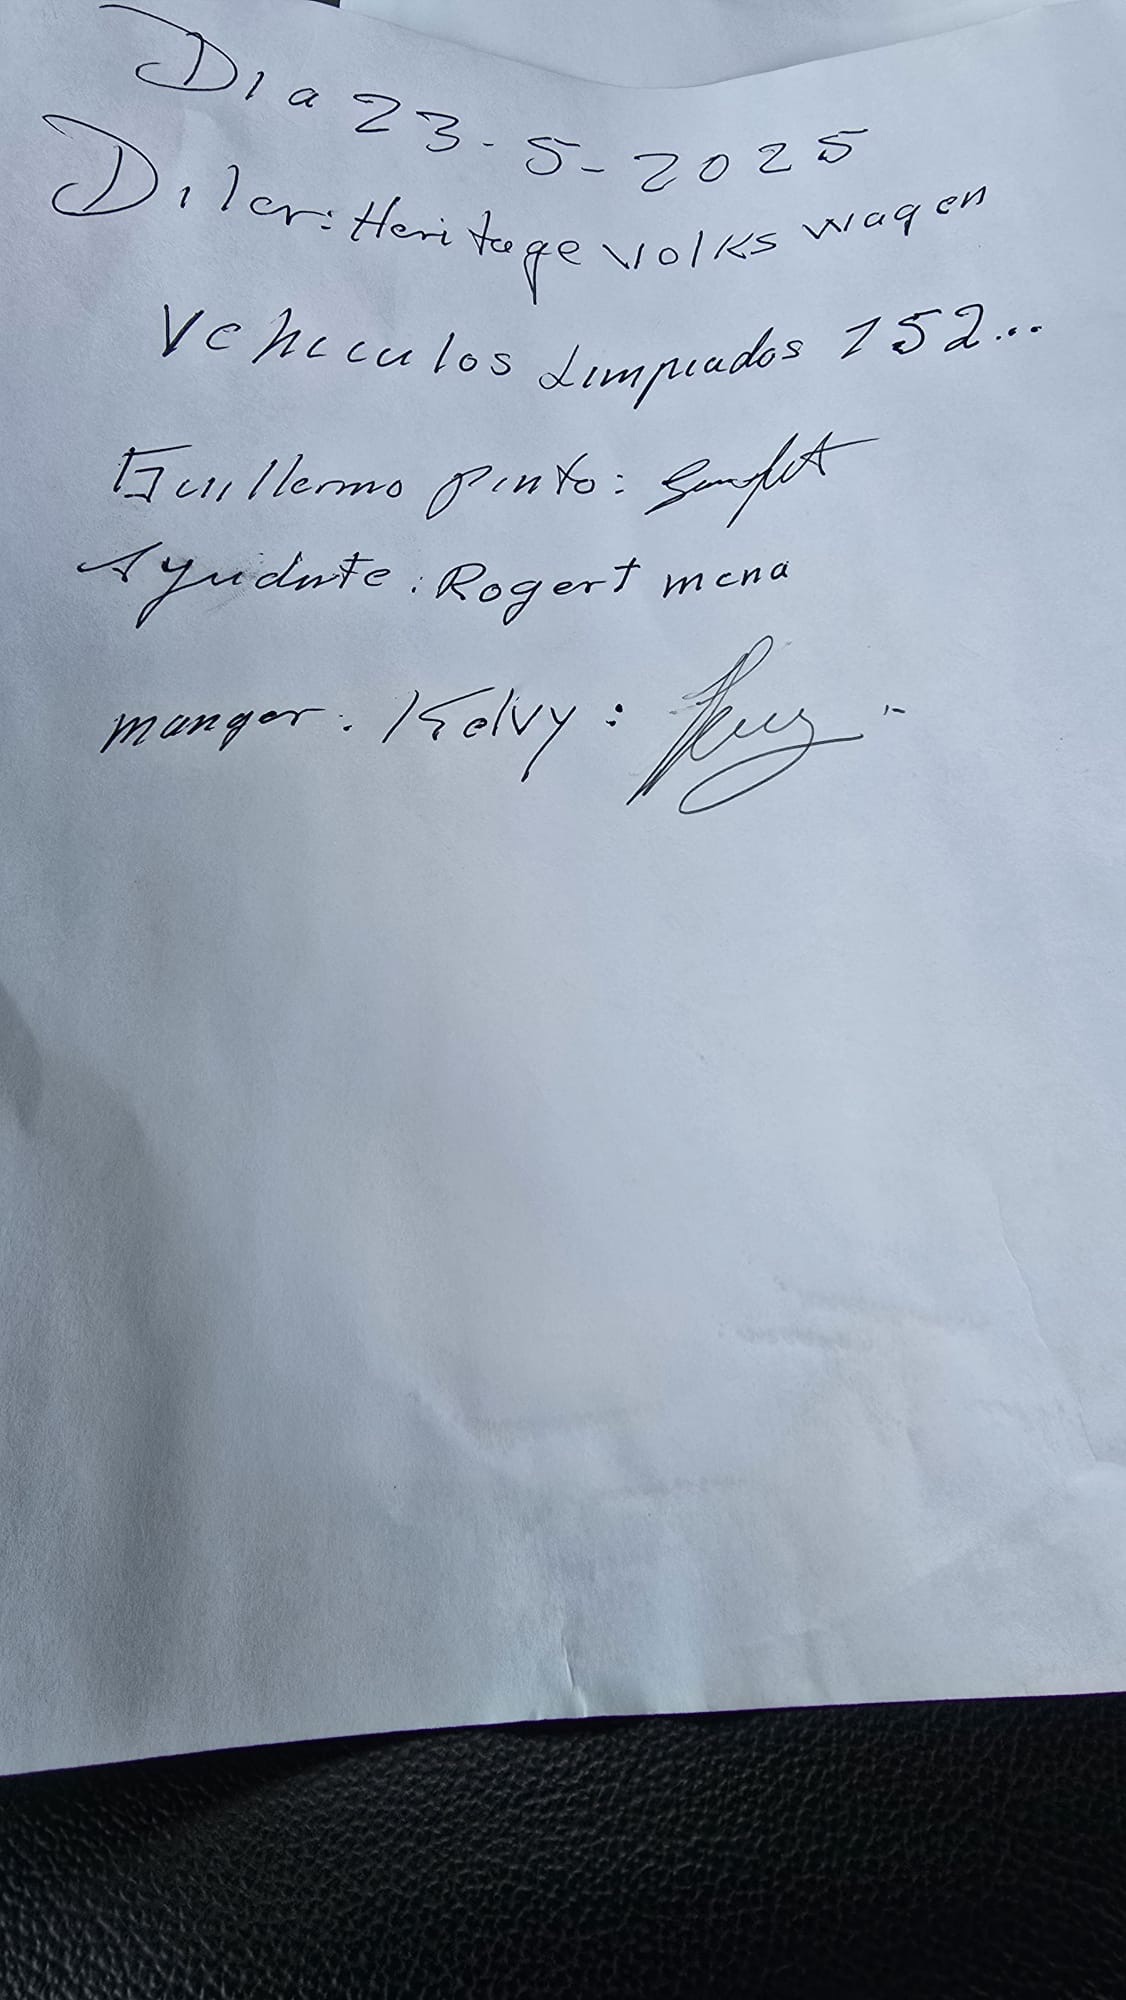 Dia 23-5-2025
Diler: Heritage volkswagen
Vehiculos Limpiados 152...
Guillermo pinto:
Ayudate: Rogert mena
manger: Kelvy: